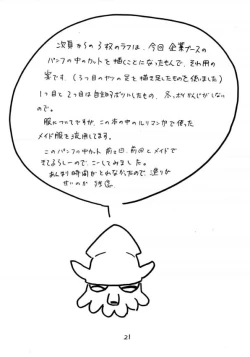 次頁からの3枚のラフは、今回 企業ブースの
パンフの中のカットを描くことになったもんで、それ用の
案です。(3つ目のヤツの足を描き足したものを使いました)
1つ目と2つ目は自動的ボツにしたもの、
ので。
服についてですが、この本の中のルリマンガで使った
メイド服を流用してます。
このパンフの中カット、前々回、前回とメイドで
きてるらしーので、こーしてみました。
あんまり時間がとれなかったので、塗りが
21